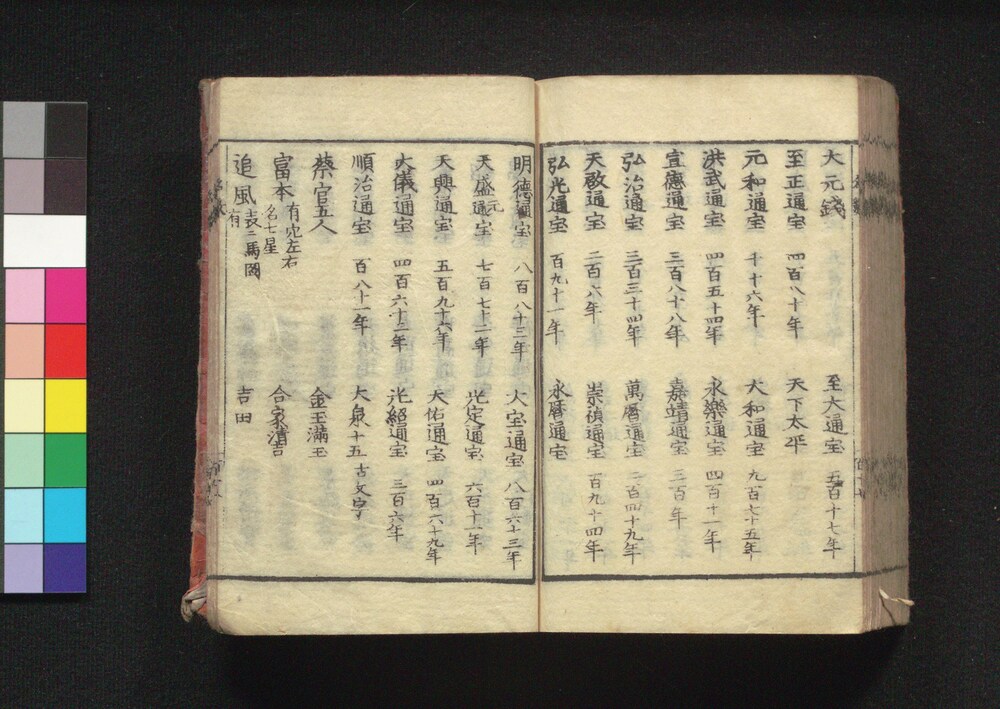 大元錢
至大通宝 五百十七年
至正通宝 四百八十年
天下太平
元和通宝 千十六年
大和通宝 九百七十五年
洪武通宝 四百五十四年
永樂通宝 四百十一年
宣德通宝 三百八十八年
嘉靖通宝 三百年
弘治通宝 三百三十四年
萬暦通宝 二百四十九年
天啟通宝 二百八年
崇禎通宝 百九十四年
弘光通宝 百九十一年
永暦通宝
明德通宝 八百八十三年
大宝通宝 八百六十三年
天盛元通宝 七百七十二年
光定通宝 六百十一年
天興通宝 五百九十六年
天佑通宝 四百六十九年
大儀通宝 四百六十二年
光紹通宝 三百六年
順治通宝 百八十一年
大泉十五 古文字
蔡官五人
金玉滿玉
富本 有穴左右 名七星
合家清吉
追風 表ニ馬図有
吉田